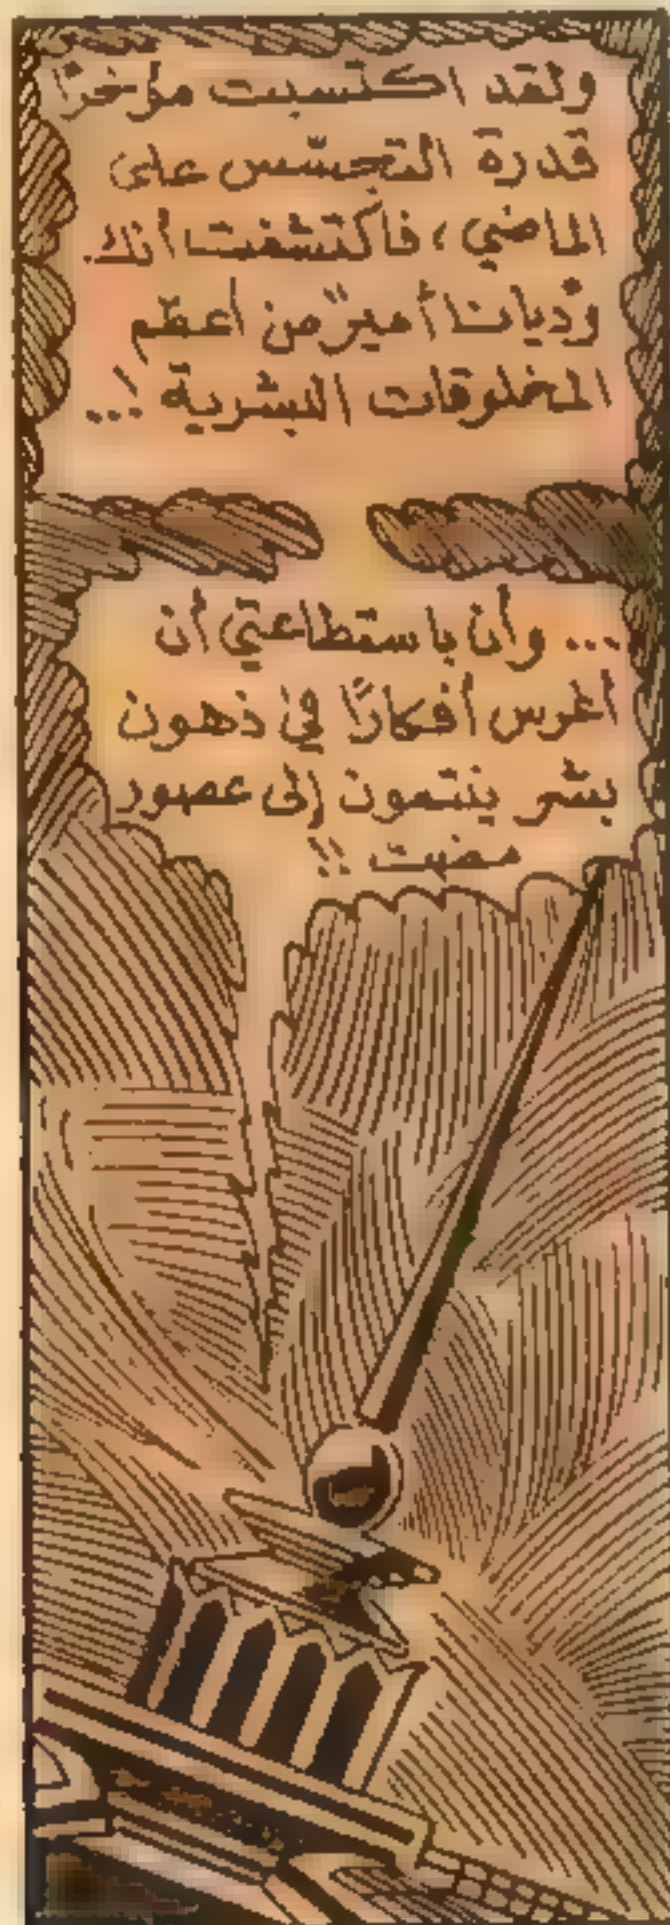 ولقد اكتسبت مؤخرًا
قدرة التجسّس على
الماضي، فاكتشفت أنك
وديانا أميرٌ من أعظم
المخلوقات البشرية !...
... وأن باستطاعتي أن
أغرس أفكارًا في ذهون
بشر ينتمون إلى عصور
مضت !!